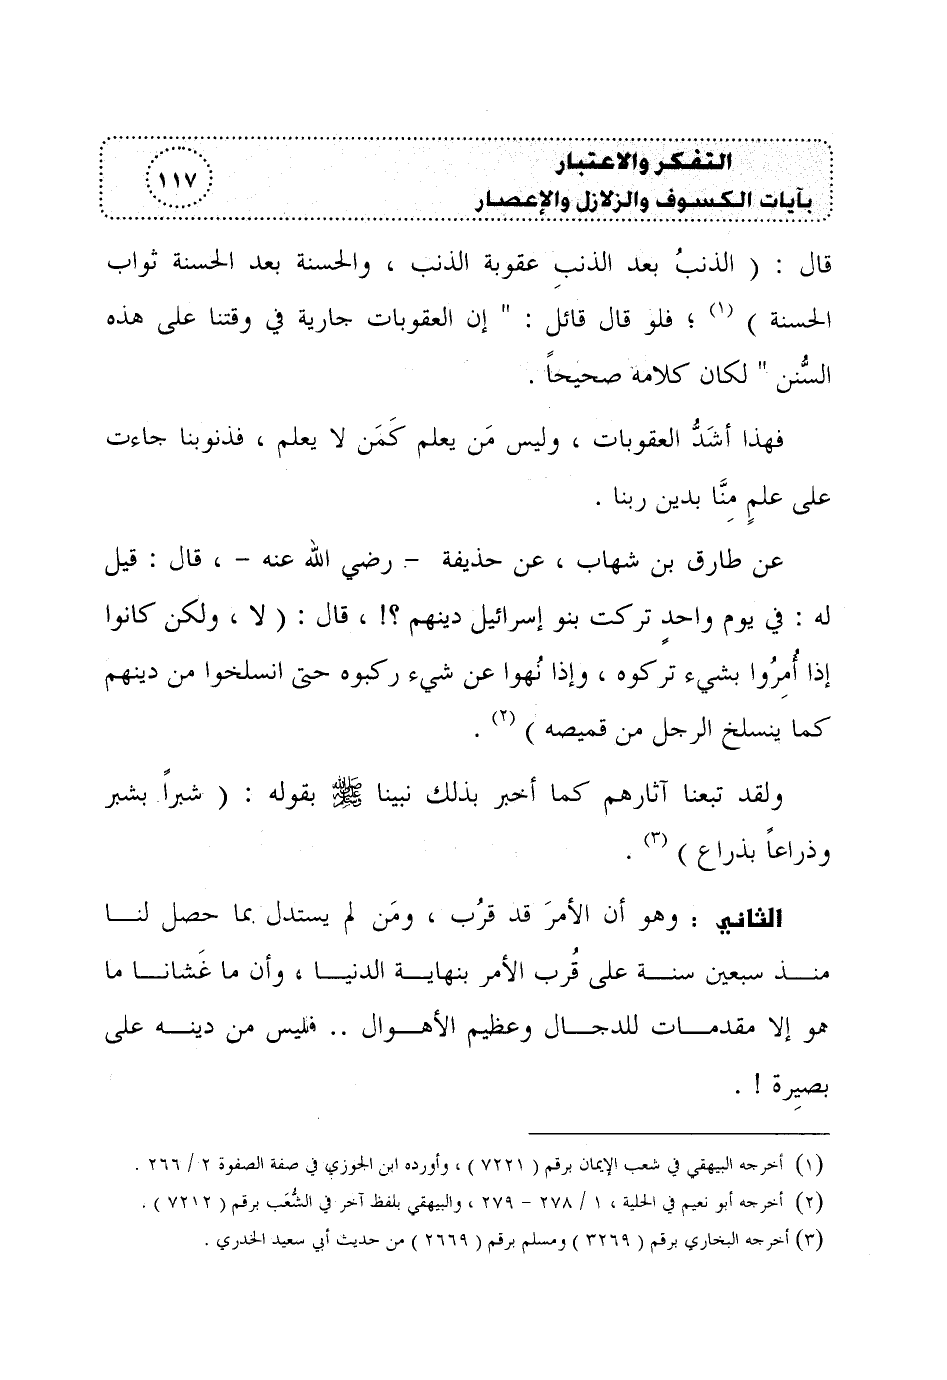 التفكر والاعتبار
١١٧
بآيات الكسوف والزلازل والإعصار
قال : ( الذنبُ بعد الذنبِ عقوبة الذنب ، والحسنة بعد الحسنة ثواب
الحسنة ) (١) ؛ فلو قال قائل : " إن العقوبات جارية في وقتنا على هذه
السُّنن " لكان كلامه صحيحاً .
فهذا أشَدُّ العقوبات ، وليس مَن يعلم كَمَن لا يعلم ، فذنوبنا جاءت
على علمٍ مِنَّا بدين ربنا .
عن طارق بن شهاب ، عن حذيفة – رضي الله عنه – ، قال : قيل
له : في يوم واحدٍ تركت بنو إسرائيل دينهم ؟! ، قال : ( لا ، ولكن كانوا
إذا أُمِرُوا بشيء تركوه ، وإذا نُهوا عن شيء ركبوه حتى انسلخوا من دينهم
كما ينسلخ الرجل من قميصه ) (٢) .
ولقد تبعنا آثارهم كما أخبر بذلك نبينا ﷺ بقوله : ( شبراً بشبر
وذراعاً بذراع ) (٣) .
الثاني : وهو أن الأمرَ قد قرُب ، ومَن لم يستدل بما حصل لنــا
منــذ سبعين سنــة على قُرب الأمر بنهايــة الدنيــا ، وأن ما غَشانــا ما
هو إلا مقدمــات للدجــال وعظيم الأهــوال .. فليس من دينــه على
بصيِرة ! .
(١) أخرجه البيهقي في شعب الإيمان برقم ( ٧٢٢١ ) ، وأورده ابن الجوزي في صفة الصفوة ٢ / ٢٦٦ .
(٢) أخرجه أبو نعيم في الحلية ، ١ / ٢٧٨ – ٢٧٩ ، والبيهقي بلفظ آخر في الشُّعَب برقم ( ٧٢١٢ ) .
(٣) أخرجه البخاري برقم ( ٣٢٦٩ ) ومسلم برقم ( ٢٦٦٩ ) من حديث أبي سعيد الخدري .